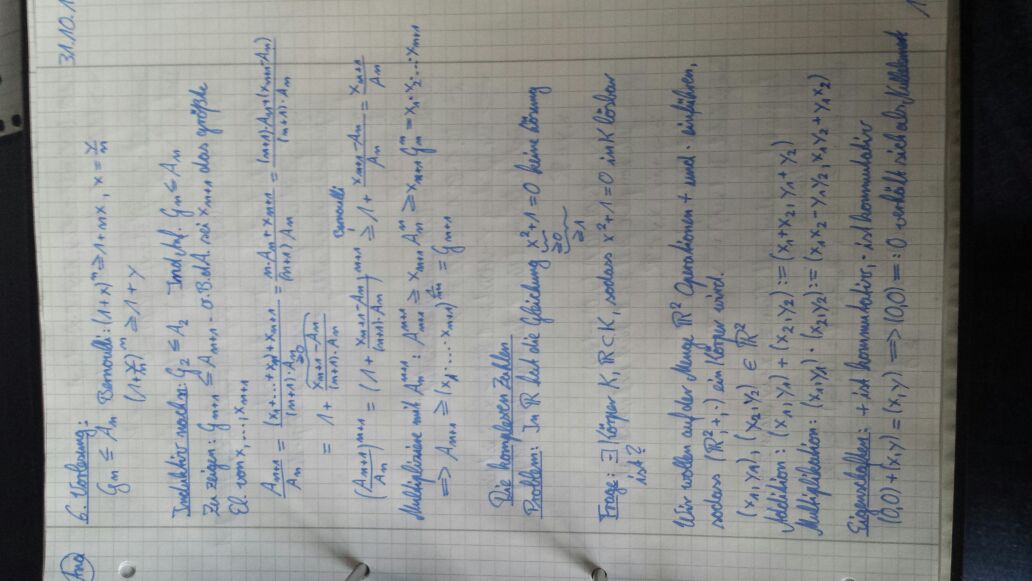 Ana
31.10.1
6. Vorlesung:
Gₙ ≤ Aₙ Bernoulli: (1+x)ⁿ ≥ 1+nx, x = y/n
(1+y/n)ⁿ ≥ 1+y
Induktiv nach n: G₂ ≤ A₂ Ind. Vor. Gₙ ≤ Aₙ
Zu zeigen: Gₙ₊₁ ≤ Aₙ₊₁. O.B.d.A. sei xₙ₊₁ das größte
El. von x₁, ..., xₙ₊₁
Aₙ₊₁/Aₙ = ((x₁+...+xₙ)+xₙ₊₁)/((n+1)·Aₙ) = (n·Aₙ+xₙ₊₁)/((n+1)Aₙ) = ((n+1)·Aₙ+(xₙ₊₁-Aₙ))/((n+1)·Aₙ)
= 1 + (xₙ₊₁-Aₙ)/((n+1)·Aₙ) ≥0
(Aₙ₊₁/Aₙ)ⁿ⁺¹ = (1 + (xₙ₊₁-Aₙ)/((n+1)·Aₙ))ⁿ⁺¹ ≥ Bernoulli 1 + (xₙ₊₁-Aₙ)/Aₙ = xₙ₊₁/Aₙ
Multipliziere mit Aₙⁿ⁺¹: Aₙ₊₁ⁿ⁺¹ ≥ xₙ₊₁ Aₙⁿ ≥ xₙ₊₁ Gₙⁿ = x₁·x₂·...·xₙ₊₁
=> Aₙ₊₁ ≥ (x₁·...·xₙ₊₁) = Gₙ₊₁
Die komplexen Zahlen
Problem: In ℝ hat die Gleichung x²+1=0 keine Lösung
≥0
≥1
Frage: ∃ Körper K, ℝ⊂K, sodass x²+1=0 in K lösbar
ist?
Wir wollen auf der Menge ℝ² Operationen + und · einführen,
sodass (ℝ²,+,·) ein Körper wird.
(x₁,y₁), (x₂,y₂) ∈ ℝ²
Addition: (x₁,y₁) + (x₂,y₂) := (x₁+x₂, y₁+y₂)
Multiplikation: (x₁,y₁) · (x₂,y₂) := (x₁x₂-y₁y₂, x₁y₂+y₁x₂)
Eigenschaften: + ist kommutativ, · ist kommutativ
(0,0)+(x,y)=(x,y) => (0,0)=:0 verhält sich als Nullelement
1